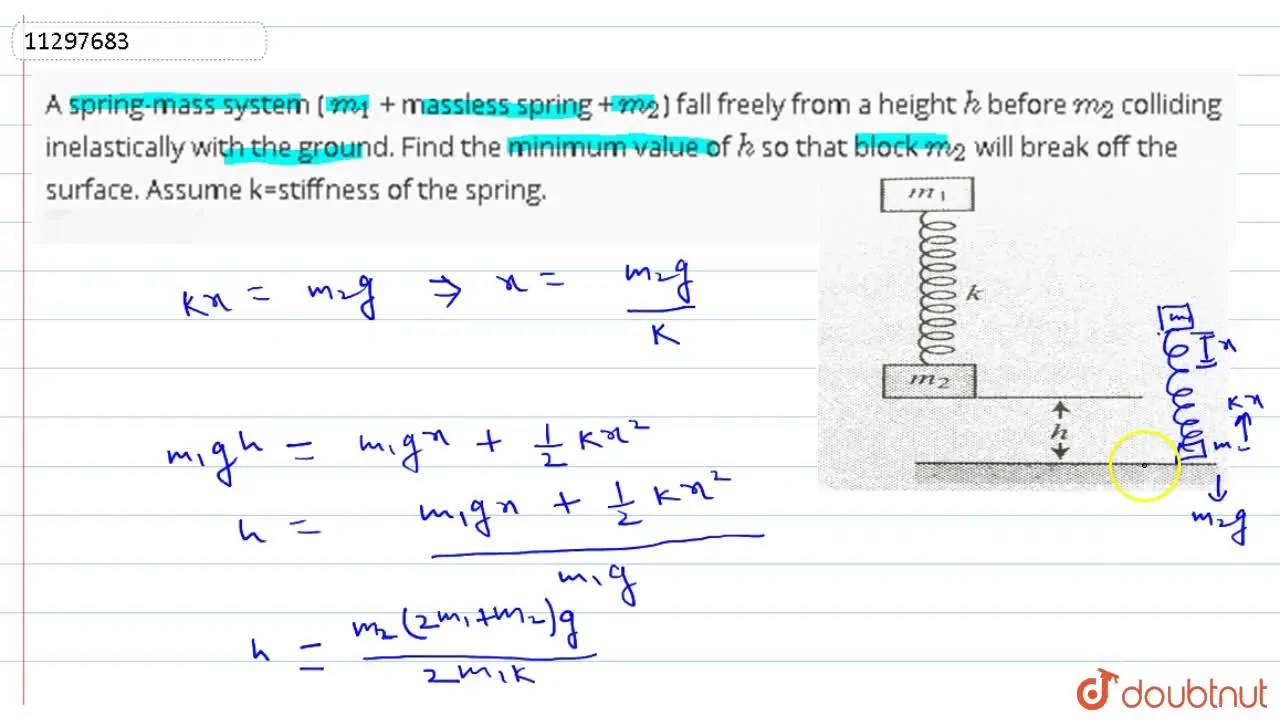 11297683
A spring-mass system ( m₁ + massless spring + m₂ ) fall freely from a height h before m₂ colliding
inelastically with the ground. Find the minimum value of h so that block m₂ will break off the
surface. Assume k=stiffness of the spring.
m₁
k
m₂
h
kx = m₂g ⇒ x = m₂g / k
m₁gh = m₁gx + 1/2 kx²
h = m₁gx + 1/2 kx² / m₁g
h = m₂(2m₁+m₂)g / 2m₁k
x
kx
m₂g
doubtnut